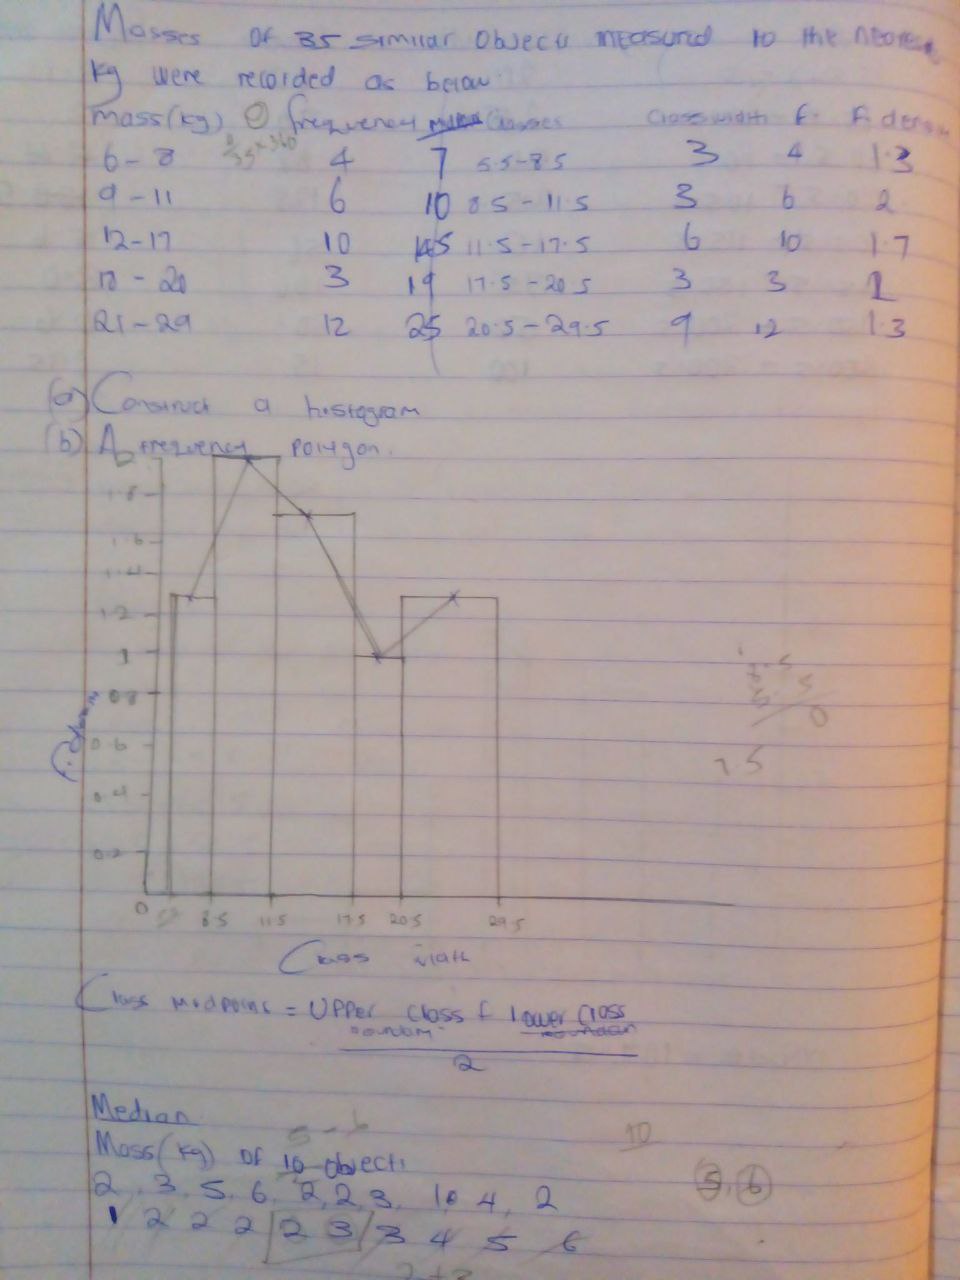 Masses of 35 similar objects measured to the nearest
kg were recorded as below
mass(kg) θ frequency classes class width f. F. density
6-8 4 7 5.5-8.5 3 4 1.3
9-11 6 10 8.5-11.5 3 6 2
12-17 10 14.5 11.5-17.5 6 10 1.7
18-20 3 19 17.5-20.5 3 3 1
21-29 12 25 20.5-29.5 9 12 1.3
(a) Construct a histogram
(b) A frequency polygon.
2
1.8
1.6
1.4
1.2
1
0.8
0.6
0.4
0.2
0 8.5 11.5 17.5 20.5 29.5
Class width
Class midpoint = Upper class + lower class
boundary boundary
2
Median
5-6 10
Mass(kg) of 10 objects
5, 6
2, 3, 5, 6, 2, 2, 3, 10 4, 2
1 2 2 2 2 3 3 4 5 6